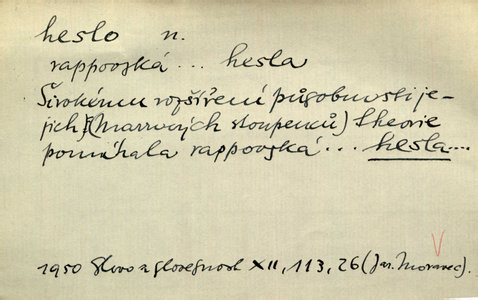 heslo n.
rappovská... hesla
Širokému rozšíření působnosti je-
jich [(Marrových stoupenců) theorie
pomáhala rappovská... hesla....
1950 Slovo a slovesnost XII, 113, 26 (Jar. Moravec).
V